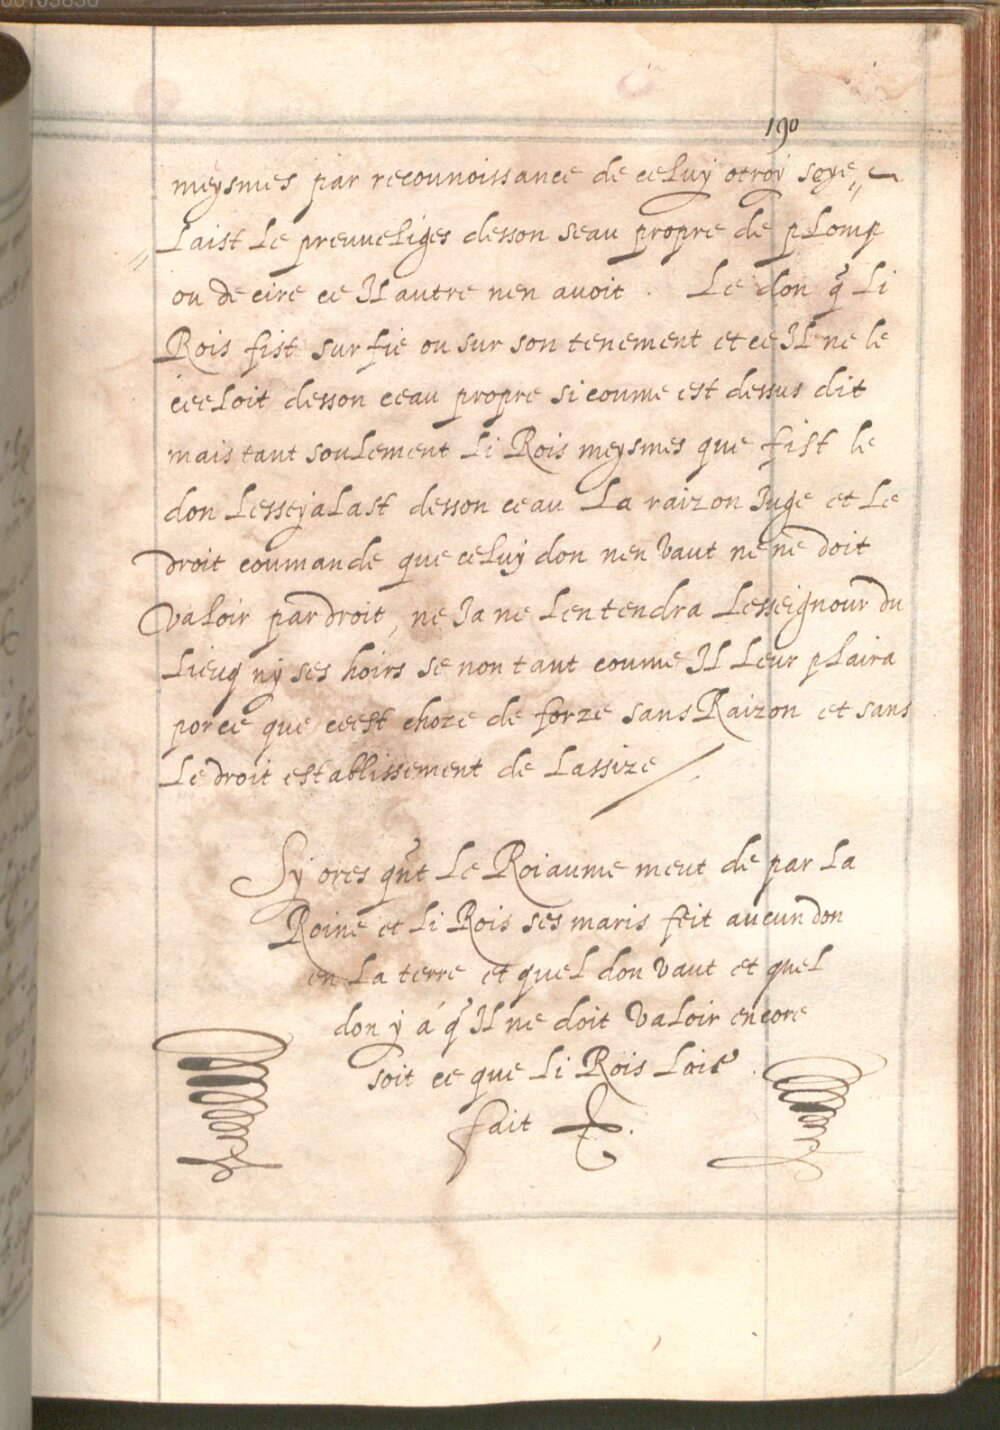 190
meysmes par recounoissance de celuy otroy seye„
„Laist le preuveliges desson seau propre de plomp
ou de cire ce Il autre nen avoit . Le don q̃ Li
Rois fist sur fie ou sur son tenement et ce Il ne le
ceeloit desson ceau propre si coume est dessus dit
mais tant soulement Li Rois meysmes que fist le
don Lesseyalast desson ceau La raizon Iuge et Le
droit coumande que celuy don nen vaut ne ne doit
valoir par droit, ne Ja ne Lentendra Lesseignour du
Lieuq ny ses hoirs se non tant coume Il Leur plaira
por ce que ceest choze de forze sans Raizon et sans
Le droit establissement de Lassize /.
Sy ores qñt Le Roiaume meut de par La
Roine et Li Rois ses maris feit aucun don
en La terre et quel don vaut et quel
don y á q̃ Il ne doit valoir encore
soit ce que Li Rois Loie
fait